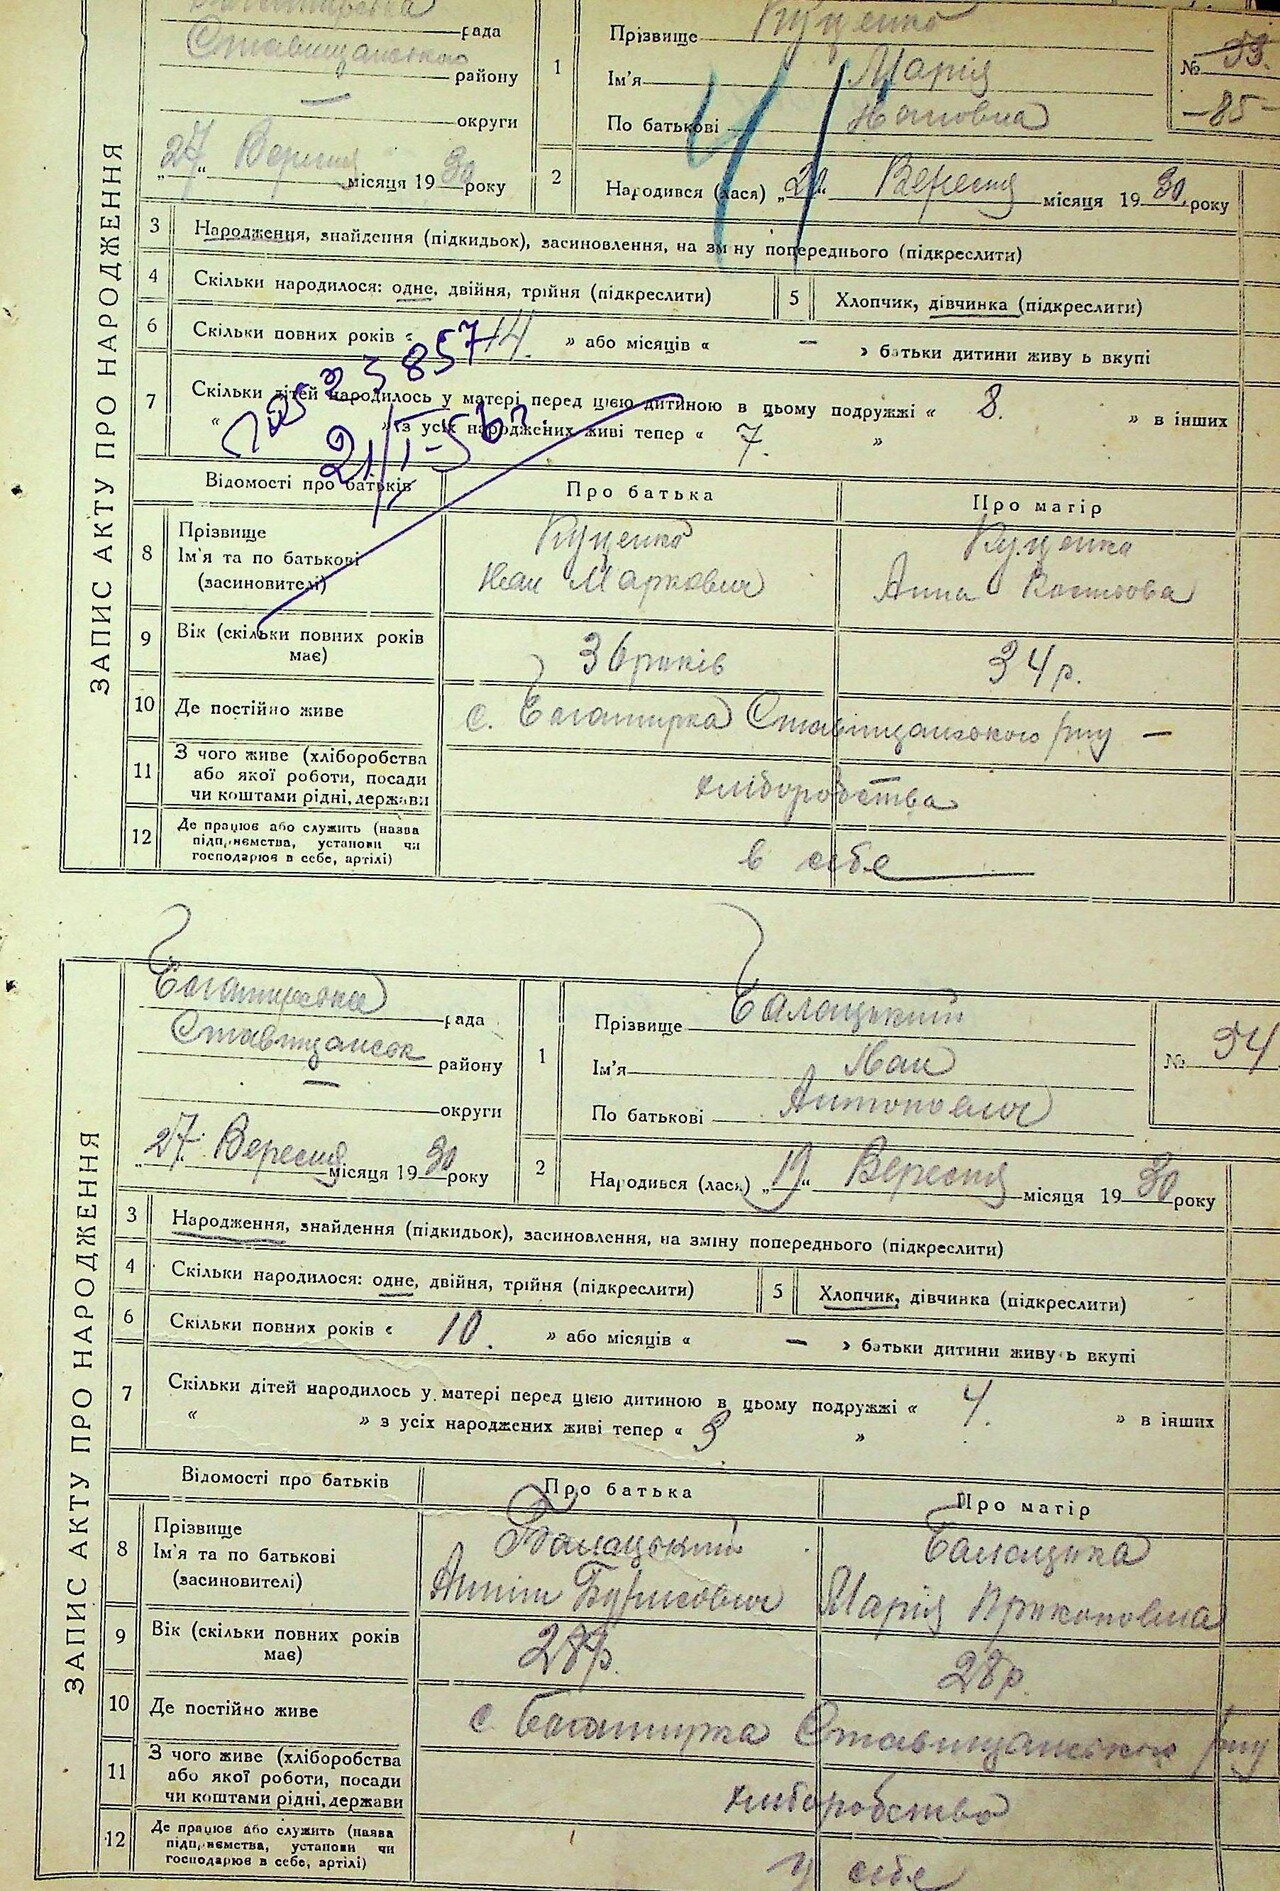 Богатирська рада
Ставищанського району
—
округи
„27“ Вересня місяця 1930 року
ЗАПИС АКТУ ПРО НАРОДЖЕННЯ
1
Прізвище Куценко
Ім'я Марія
По батькові
№ 53.
-85-
2
Народився (лася) „20“ Вересня місяця 1930 року
3 Народження, знайдення (підкидьок), засиновлення, на зміну попереднього (підкреслити)
4 Скільки народилося: одне, двійня, трійня (підкреслити)
5 Хлопчик, дівчинка (підкреслити)
6 Скільки повних років « 14. » або місяців « — » батьки дитини живуть вкупі
7 Скільки дітей народилось у матері перед цією дитиною в цьому подружжі « 8. » в інших
« » з усіх народжених живі тепер « 7. »
Відомості про батьків
Про батька
Про матір
8 Прізвище
Ім'я та по батькові
(засиновителі)
Куценко
Іван Маркович
Куценко
Анна
9 Вік (скільки повних років
має)
36 років
34 р.
10 Де постійно живе
с. Богатирка Ставищанського р-ну —
11 З чого живе (хліборобства
або якої роботи, посади
чи коштами рідні, держави
хліборобства
12 Де працює або служить (назва
підприємства, установи чи
господарює в себе, артілі)
в себе
ЗАПИС АКТУ ПРО НАРОДЖЕННЯ
Богатирська рада
району
—
округи
„27“ Вересня місяця 1930 року
1
Прізвище Балацький
Ім'я Іван
По батькові Антонович
№ 54
2
Народився (лася) „19“ Вересня місяця 1930 року
3 Народження, знайдення (підкидьок), засиновлення, на зміну попереднього (підкреслити)
4 Скільки народилося: одне, двійня, трійня (підкреслити)
5 Хлопчик, дівчинка (підкреслити)
6 Скільки повних років « 10. » або місяців « — » батьки дитини живуть вкупі
7 Скільки дітей народилось у матері перед цією дитиною в цьому подружжі « 4. » в інших
« » з усіх народжених живі тепер « 3 »
Відомості про батьків
Про батька
Про матір
8 Прізвище
Ім'я та по батькові
(засиновителі)
Балацький
Антін Борисович
Балацька
Марія Прокоповна
9 Вік (скільки повних років
має)
28 р.
28 р.
10 Де постійно живе
с. Богатирка Ставищанського р-ну
11 З чого живе (хліборобства
або якої роботи, посади
чи коштами рідні, держави
хліборобство
12 Де працює або служить (назва
підприємства, установи чи
господарює в себе, артілі)
у себе